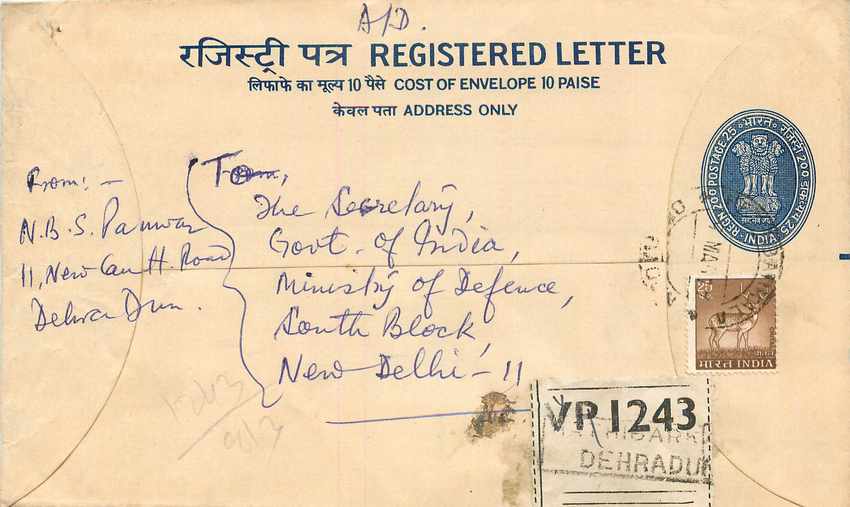 A/D.
रजिस्ट्री पत्र REGISTERED LETTER
लिफाफे का मूल्य 10 पैसे COST OF ENVELOPE 10 PAISE
केवल पता ADDRESS ONLY
REGN 200 POSTAGE 25 भारत रजिस्ट्री 200 डाक व्यय 25 INDIA
From: -
N.B.S. Panwar
11, New Can H. Road
Dehra Dun.
To,
The Secretary,
Govt. of India,
Ministry of Defence,
South Block,
New Delhi - 11
25
भारत INDIA
VP 1243
DEHRADU